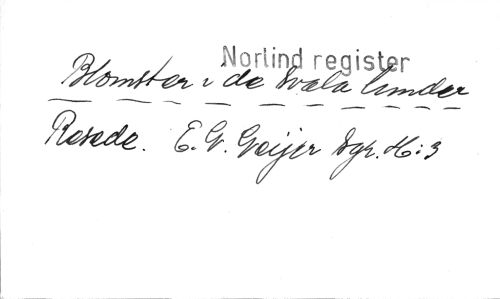 Norlind register
Blomster i de svala lunder
Reseda. E. G. Geijer Dgr. H: 3